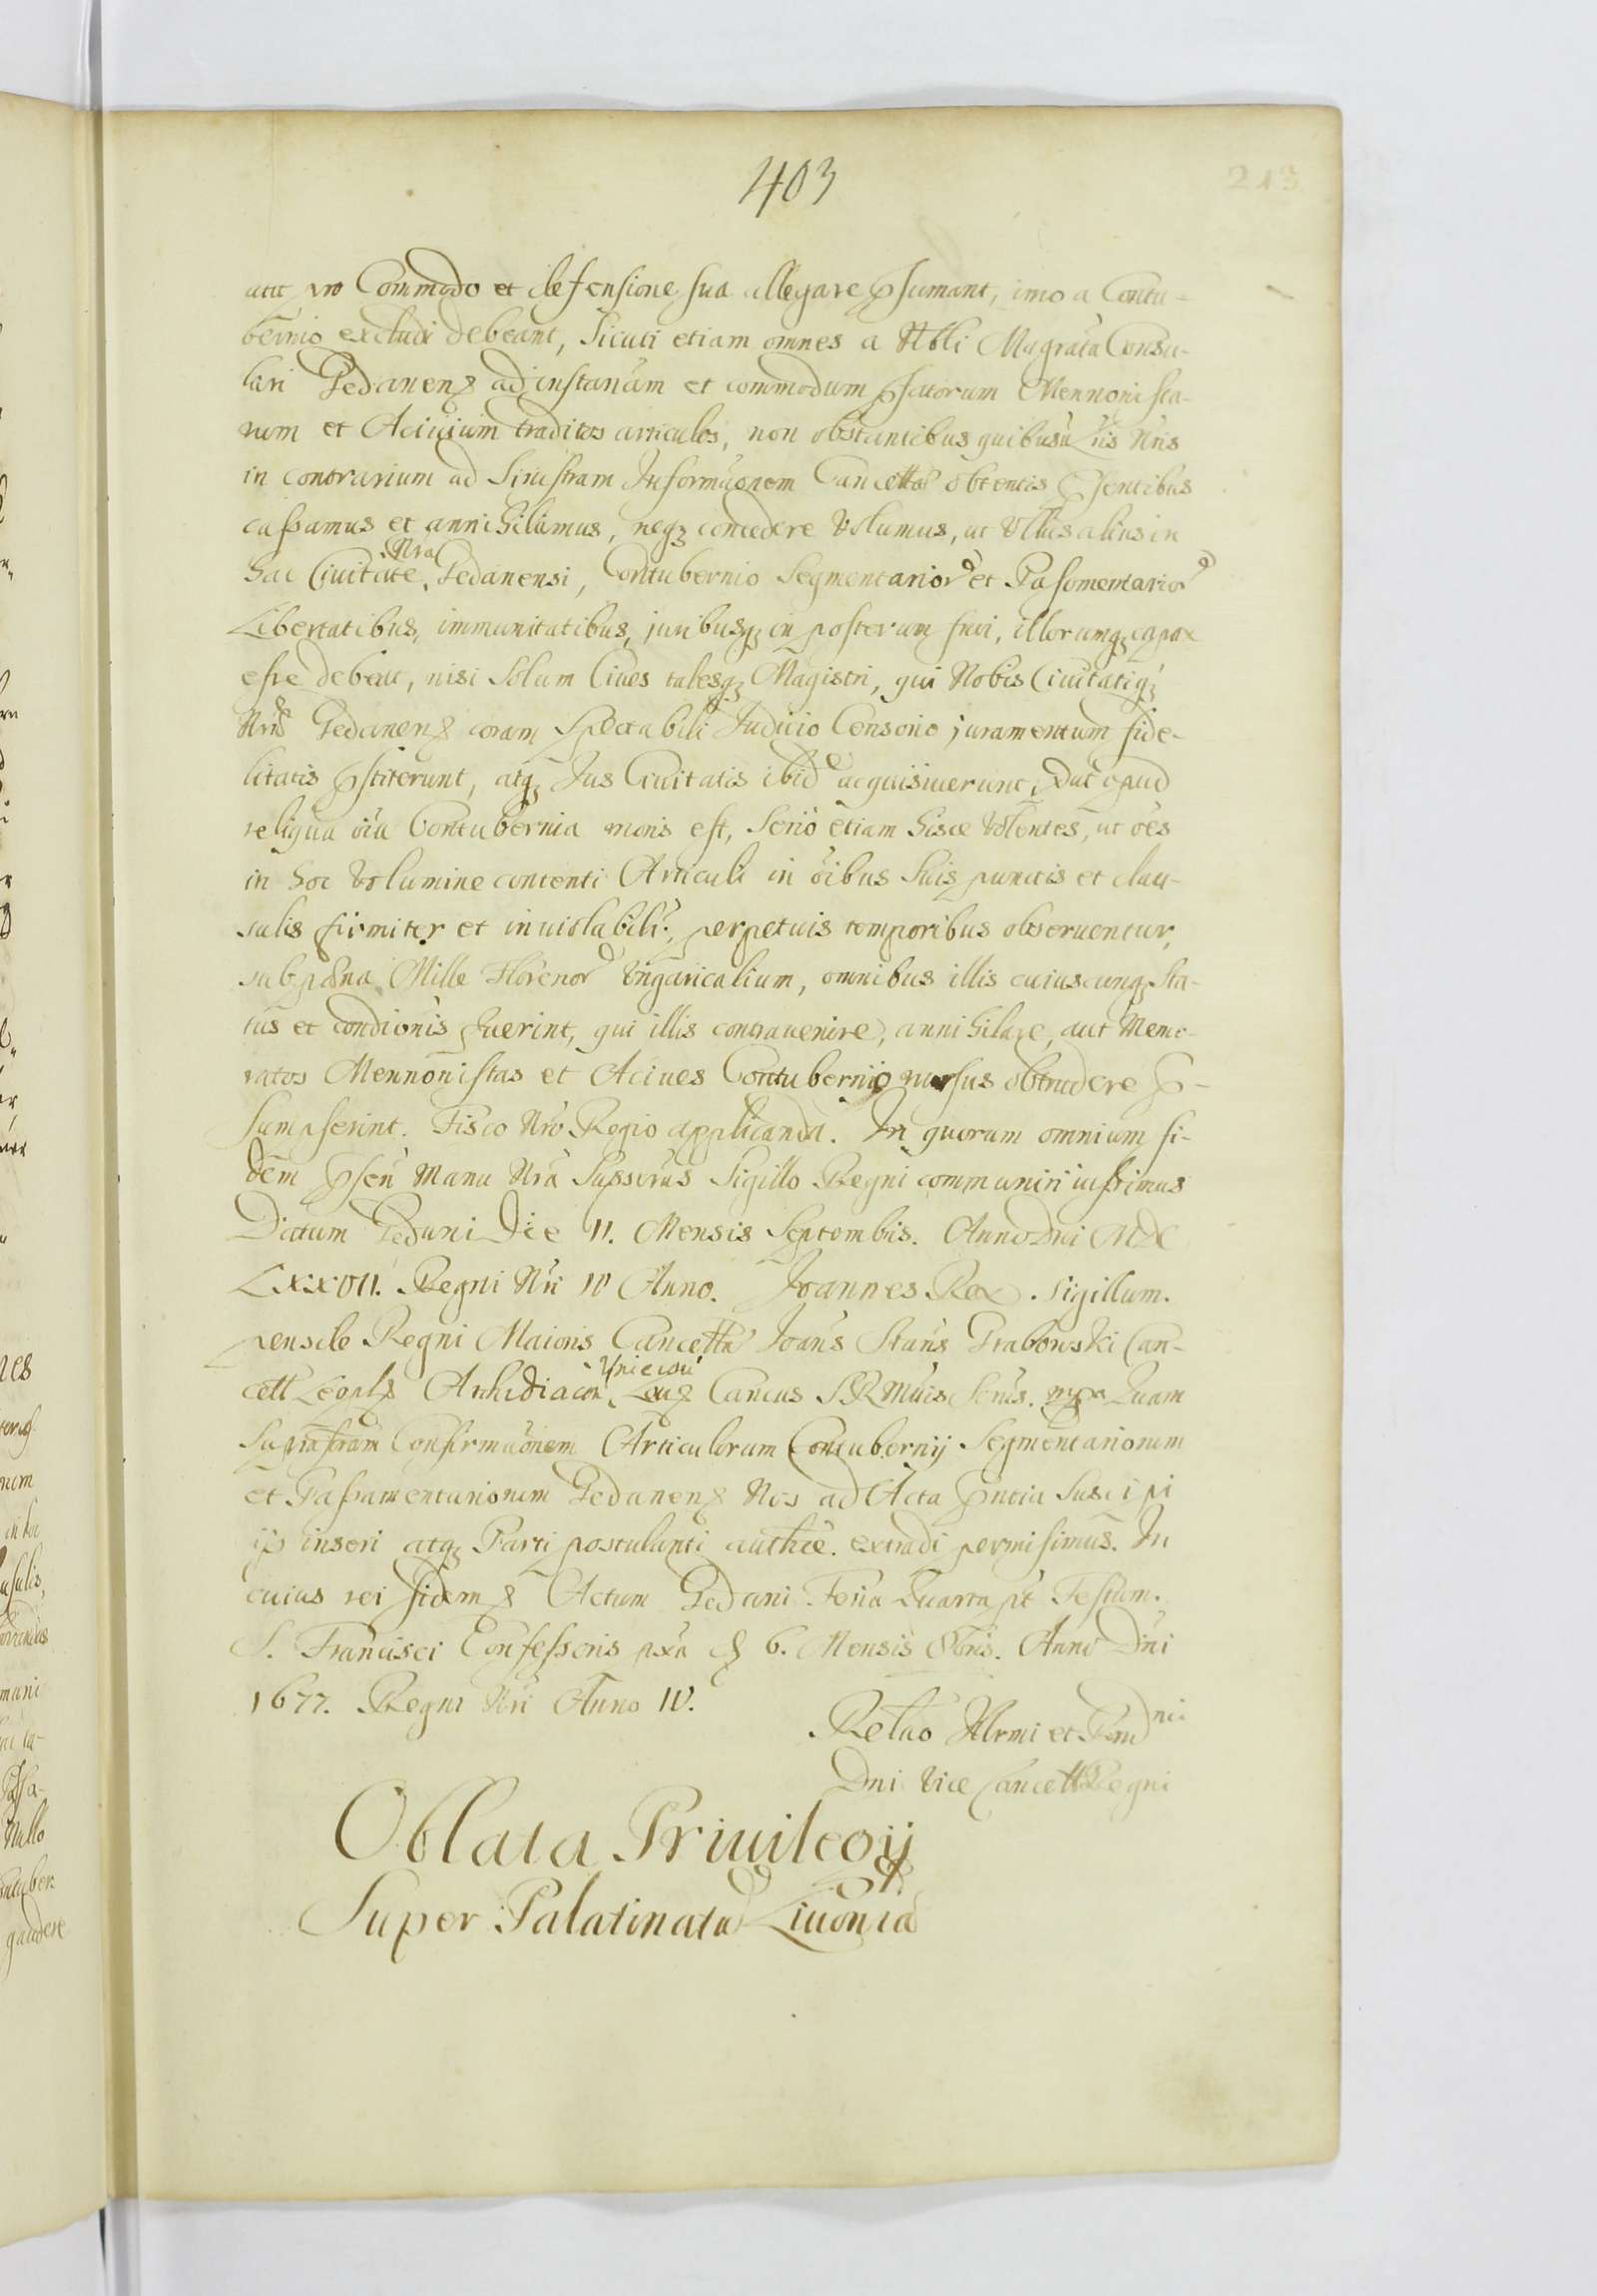 403
213
aut pro Commodo et defensione sua allegare psumant, imo a Contu-
bernio excludi debeant, Sicuti etiam omnes a Nbli Mugratu Consu-
lari Gedanens ad instantiam et commodum psatorum Mennonista-
rum et Aciuium traditos articulos, non obstantibus quibusuis Lris Nris
in contrarium ad Sinistram Informaonem Cancella obtentis psentibus
cassamus et annihilamus, neq concedere Volumus, ut Vllus alius in
Nra
hac Ciuitate Gedanensi, Contubernio Segmentarior et Pasomentarior
Libertatibus, immunitatibus, juribusq in posterum frui, illorumq capax
esse debeat, nisi Solum Ciues talesq Magistri, qui Nobis Ciuitatiq
Nræ Gedanens coram Spectabili Judicio Censorio juramentum fide-
litatis pstiterunt, atq Jus Ciuitatis ibid acquisiuerunt, put apud
reliqua oia Contubernia moris est, Serio etiam hisce Volentes, ut oes
in hoc Volumine contenti Articuli in oibus Suis punctis et clau-
sulis firmiter et inuiolabilr, perpetuis temporibus obseruentur,
sub pæna Mille Florenor Vngaricalium, omnibus illis cuiuscunq Sta-
tus et condionis fuerint, qui illis contrauenire, annihilare, aut Memo-
ratos Mennonistas et Aciues Contubernio rursus obtrudere p-
sumpserint. Fisco Nro Regio applicanda. In quorum omnium fi-
dem psen Manu Nra Subscrus Sigillo Regni communiri iussimus
Datum Gedani Die 11. Mensis Septembis. Anno Dni MDC
LXXVII. Regni Nri IV Anno. Joannes Rex. Sigillum.
pensile Regni Maioris Cancella Joans Stans Grabowski Can-
Vnieiou
cell Archidiacon Cancus SRMtis Scrus. mpa Quam
Suprascram Confirmaonem Articulorum Contubernij Segmentariorum
et Passamentariorum Gedanens Nos ad Acta pntia Suscipi
ijs inseri atq Parti postulanti authce. extradi permisimus. In
cuius rei fidem Actum Gedani Feria Quarta pt Festum.
S. Francisci Confessoris pxa 6. Mensis 8bris. Anno Dni
1677. Regni Nri Anno IV.
Relao Illrmi et Rmd
Dni Vice Cancell Regni
Oblata Priuilegij
Super Palatinatu Liuoniæ